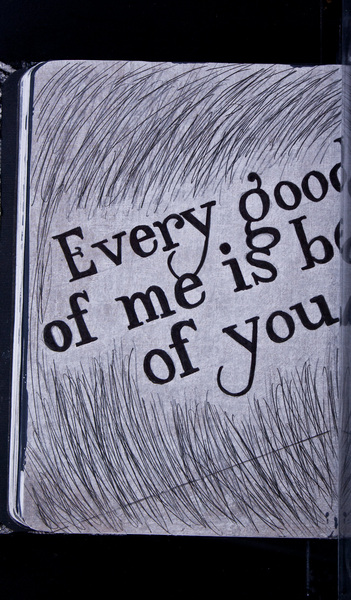 Every good
of me is
of you